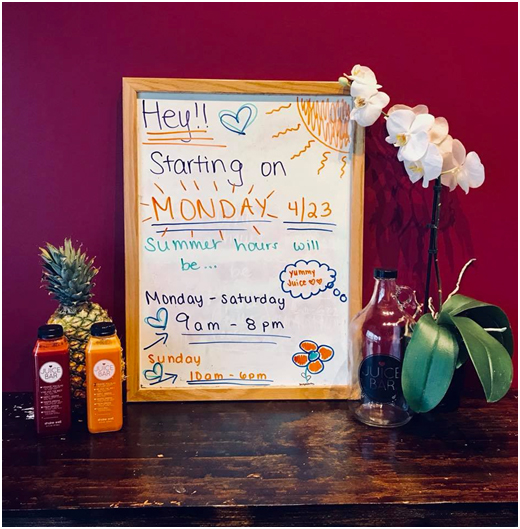 Hey!!
Starting on
MONDAY 4/23
Summer hours will
be...
yummy
juice
Monday - saturday
9am - 8pm
Sunday
10am - 6pm
JUICE
BAR
JUICE
BAR
JUICE
BAR